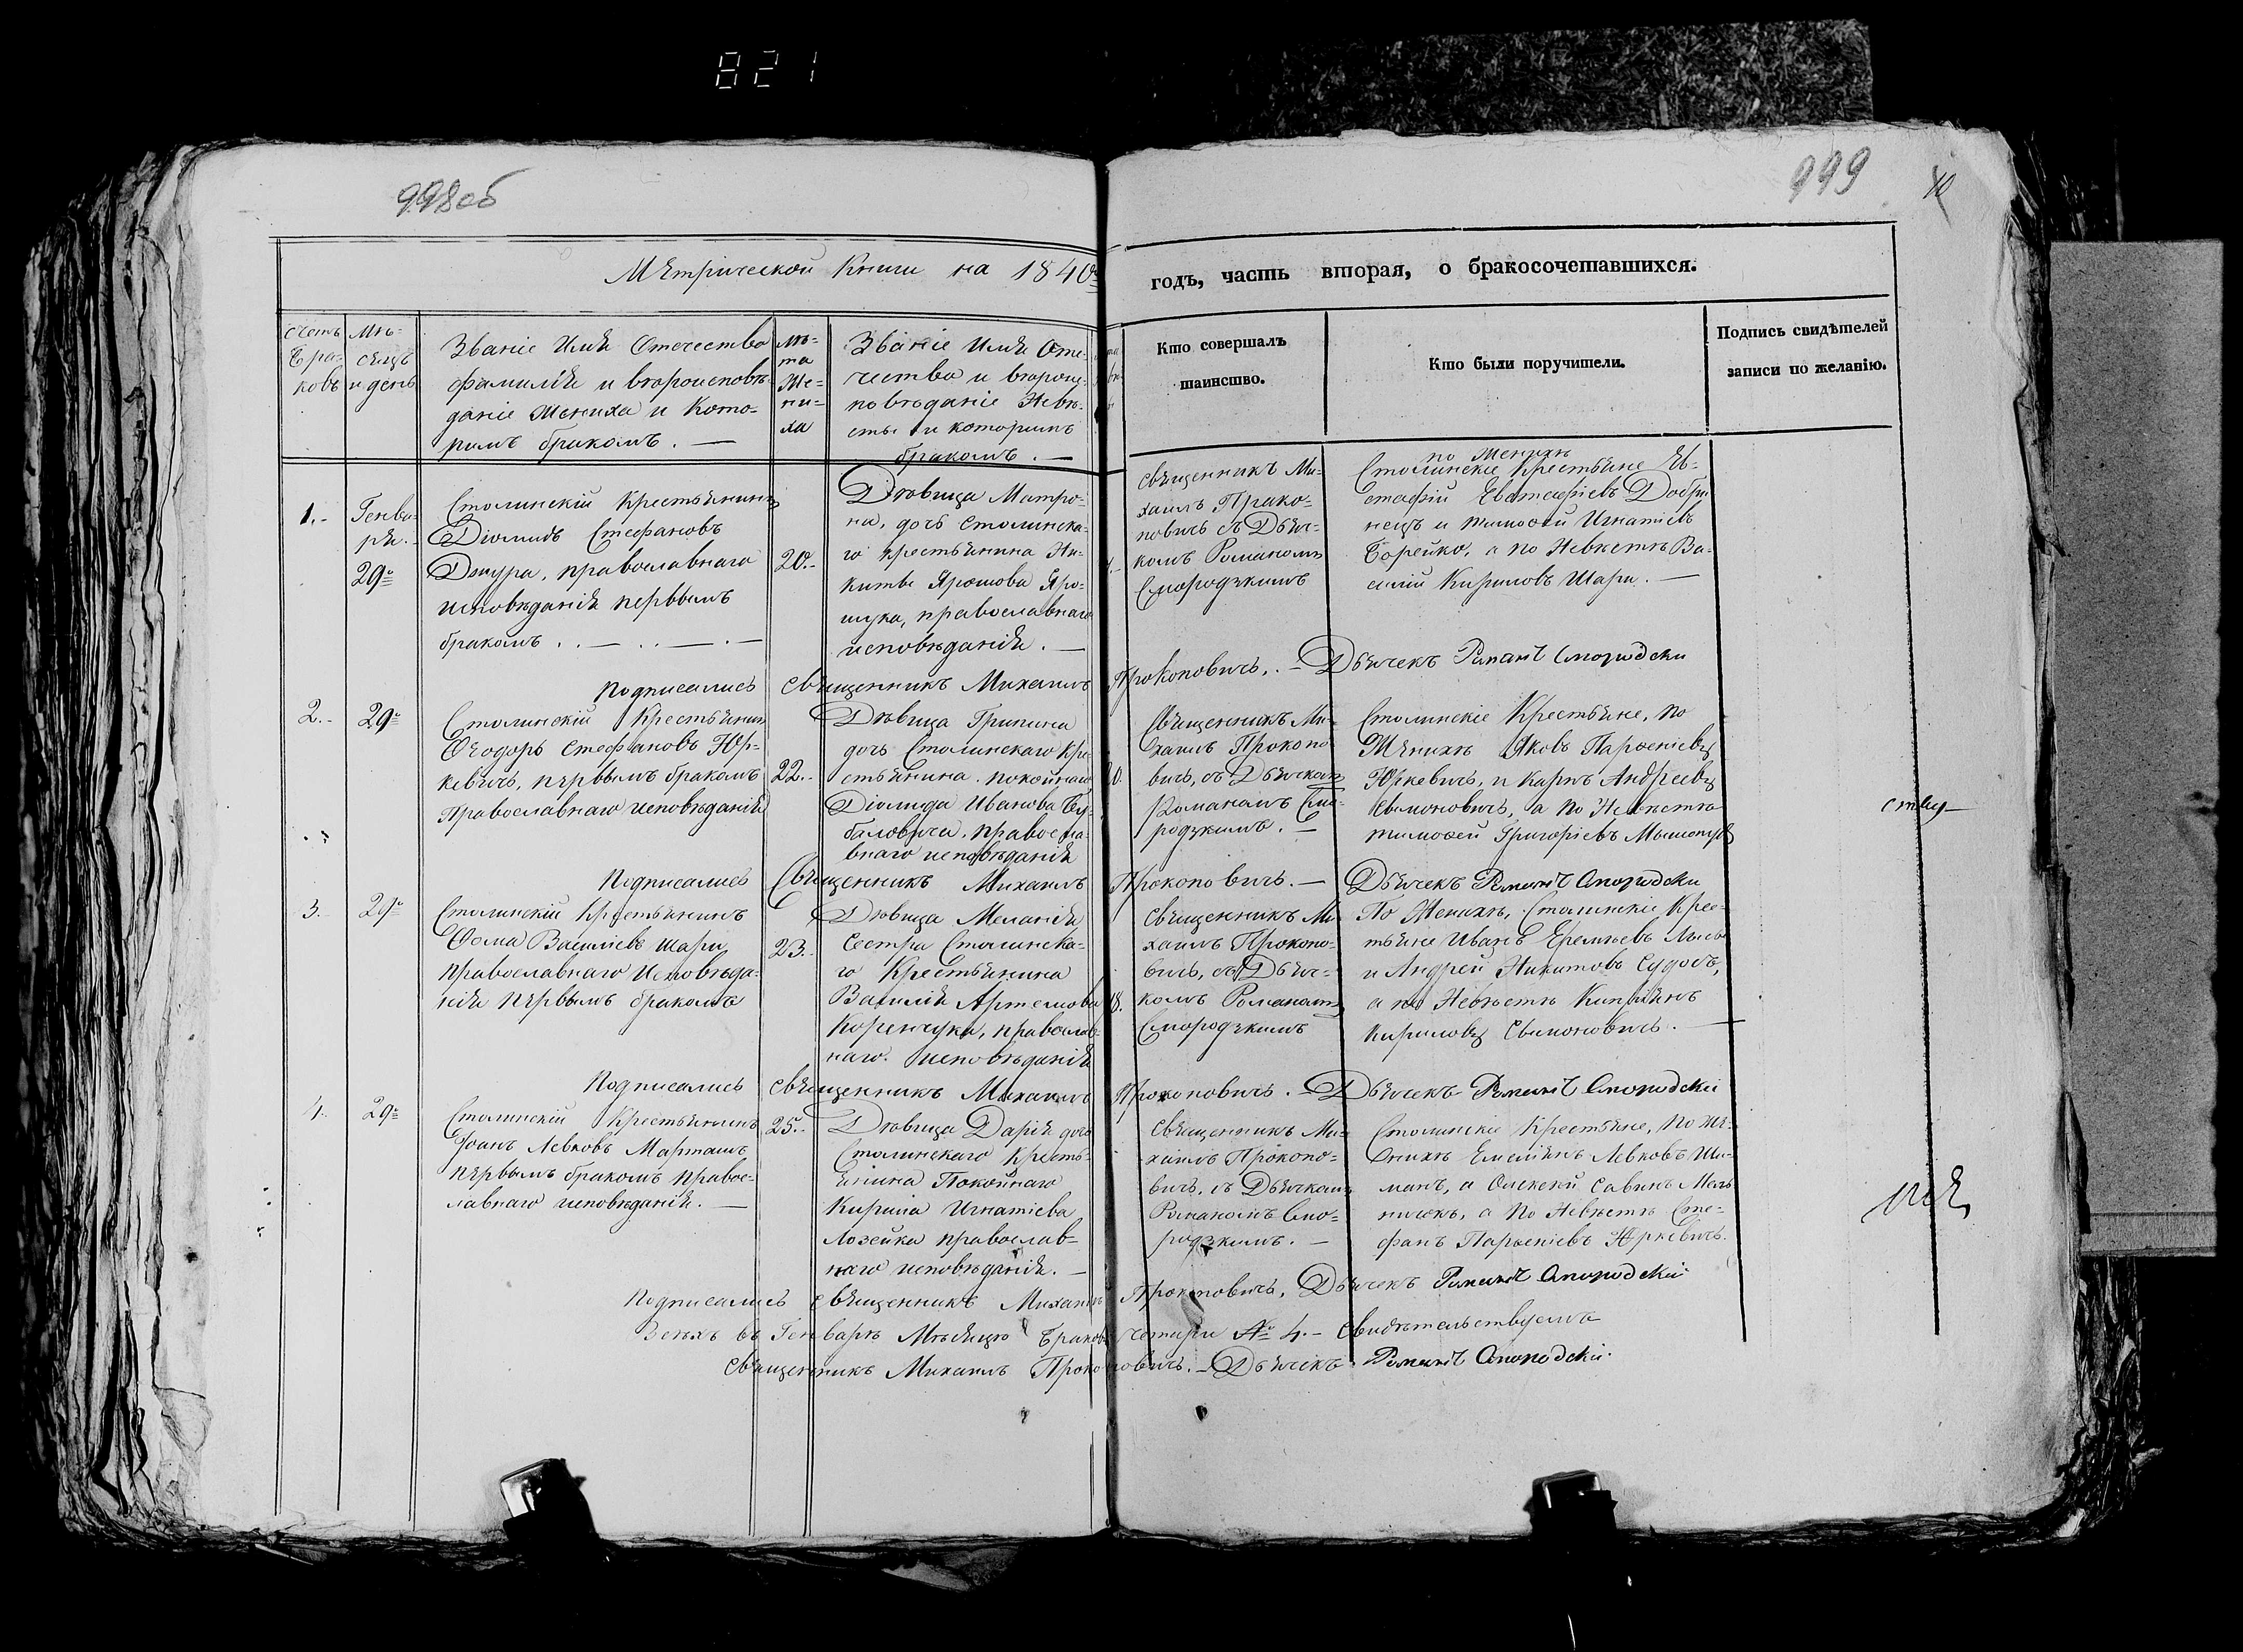 821
998об
999
10
Метрической Книги на 1840й
годъ, часть вторая, о бракосочетавшихся.
Счетъ
бра-
ковъ
Мѣ-
сяцъ
и день
Званіе Имя Отечество
фамилія и вѣроисповѣ-
даніе жениха и кото-
рымъ бракомъ. —
Лѣ-
та
Же-
ни-
ха
Званіе Имя Оте-
чество и вѣроис-
повѣданіе Невѣ-
сты и которымъ
бракомъ. —
Кто совершалъ
таинство.
Кто были поручители.
Подпись свидѣтелей
записи по желанію.
1.-
Генва-
ря.
29о
Столинскій Крестьянинъ
Діомидъ Стефановъ
православнаго
исповѣданія первымъ
бракомъ. . — . . — . —
20.-
Дѣвица Матро-
на, дочь Столинска-
го крестьянина Ни-
киты Ярошова Яро-
шука, православнаго
исповѣданія. —
Священникъ Ми-
хаилъ Проко-
повичъ съ Дьяч-
комъ Романомъ
Смородзкимъ
по Женихѣ
Столинскіе Крестьяне Ев-
стафій Евстафіевъ Добри
нецъ и Тимоѳей Игнатіевъ
Борейко, а по Невѣстѣ Ва-
силій Кириловъ Шари. —
Подписались Священникъ Михаилъ Прокоповичъ. – Дьячекъ Романъ Смородски
2.-
29о
Столинскій Крестьянинъ
Ѳеодоръ Стефановъ Юр-
кевичъ, первымъ бракомъ
Православнаго исповѣданія
22.-
Дѣвица Грипина
дочь Столинскаго Кре
стьянина покойнаго
Діомида Иванова Бу-
баловича, православ-
внаго исповѣданія
20.
Священникъ Ми-
хаилъ Прокопо
вичъ, съ Дьячкомъ
Романомъ Смо-
родзкимъ. —
Столинскіе Крестьяне, по
Женихѣ Яковъ Парѳеніевъ
Юркевичъ, и Карпъ Андреевъ
Симоновичъ, а по Невѣстѣ
Тимоѳей Григоріевъ
ству—
Подписались Священникъ Михаилъ Прокоповичъ. — Дьячекъ Романъ Смородски
3.
29о
Столинскій Крестьянинъ
Ѳома Василіевъ Шари
православнаго исповѣда-
нія первымъ бракомъ
23.-
Дѣвица Меланія
Сестра Столинска-
го Крестьянина
Василія Артемова
Коренчука, православ-
наго исповѣданія
18.
Священникъ Ми
хаилъ Прокопо-
вичъ, съ Дьяч-
комъ Романомъ
Смородзкимъ
По Женихѣ, Столинскіе Крес-
тьяне Иванъ Еремѣевъ
и Андрей Никитовъ Судосъ,
а по Невѣстѣ Кипріянъ
Кириловъ Симоновичъ. —
Подписались Священникъ Михаилъ Прокоповичъ. – Дьячекъ Романъ Смородскій
4.
29о
Столинскій Крестьянинъ
Іоанъ Левковъ Марташъ
первымъ бракомъ правос-
лавнаго исповѣданія. —
25.-
Дѣвица Дарія дочь
Столинскаго Кресть-
янина Покойнаго
Кирила Игнатіева
Лозейка православ-
наго исповѣданія. —
Священникъ Ми-
хаилъ Прокопо-
вичъ, съ Дьячкомъ
Романомъ Смо-
родзкимъ. —
Столинскіе Крестьяне, по Же-
нихѣ Емеліянъ Левковъ Ши-
манъ, а Олексей Савинъ Мель
никъ, а по Невѣстѣ Сте-
фанъ Парѳеніевъ Юркевичъ.
Подписались Священникъ Михаилъ Прокоповичъ, Дьячекъ Романъ Смородскій
Всѣхъ въ Генварѣ Мѣсяцѣ Браковъ четыри № 4.– Свидѣтельствуемъ
Священникъ Михаилъ Прокоповичъ. – Дьячекъ Романъ Смородскій.